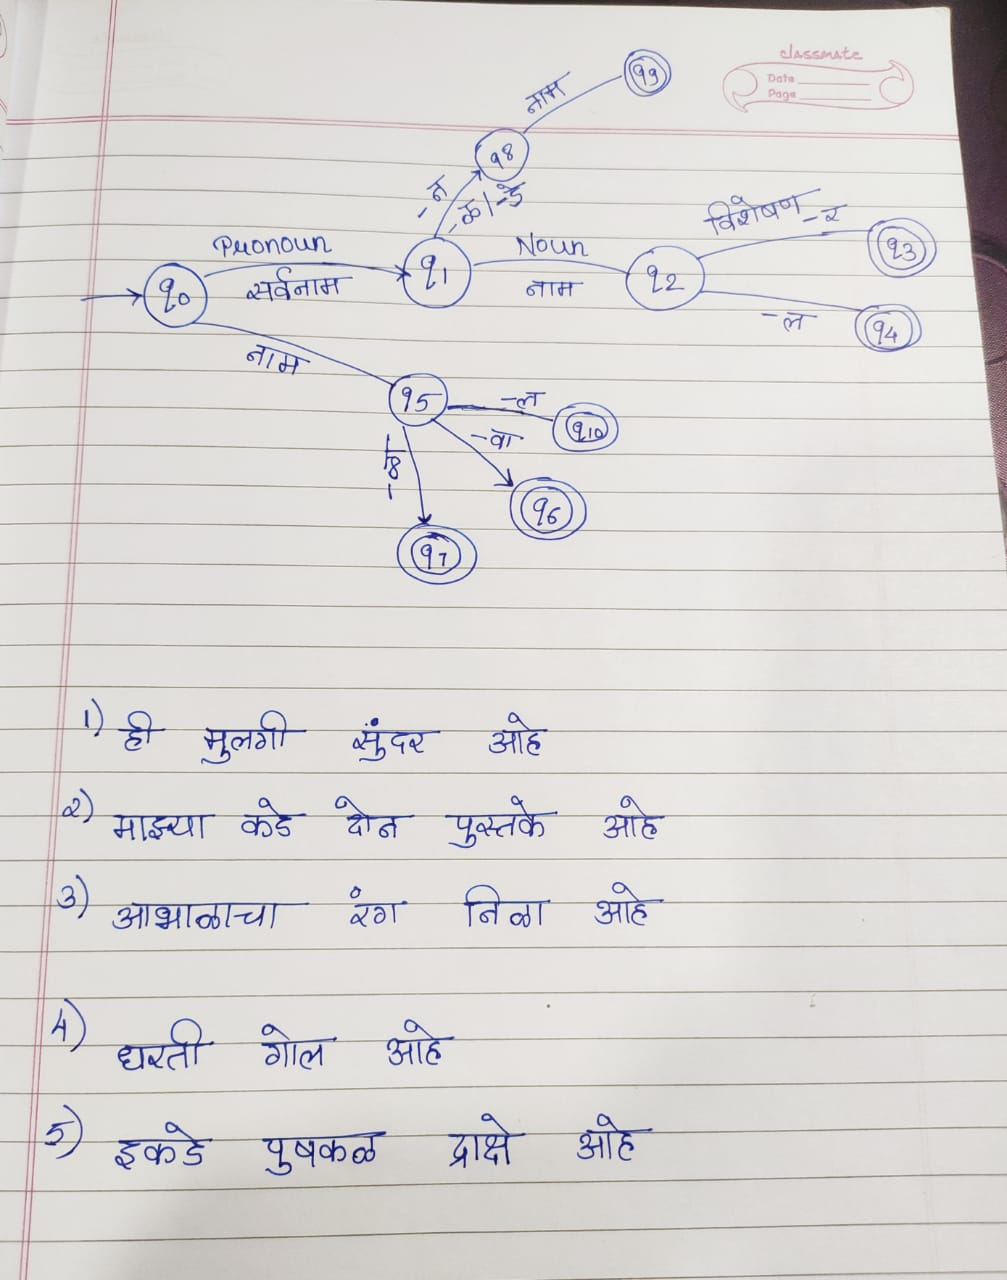 classmate
Date
Page
नाम
q9
q8
-न
-क|-डे
Pronoun
सर्वनाम
q0
q1
Noun
नाम
q2
विशेषण -र
q3
-ल
q4
नाम
q5
-ल
q10
-वा
q6
q7
1) ही मुलगी सुंदर आहे
२) माझ्या कडे दोन पुस्तके आहे
3) आभाळाचा रंग निळा आहे
4) धरती गोल आहे
5) इकडे पुषकळ द्राक्षे आहे